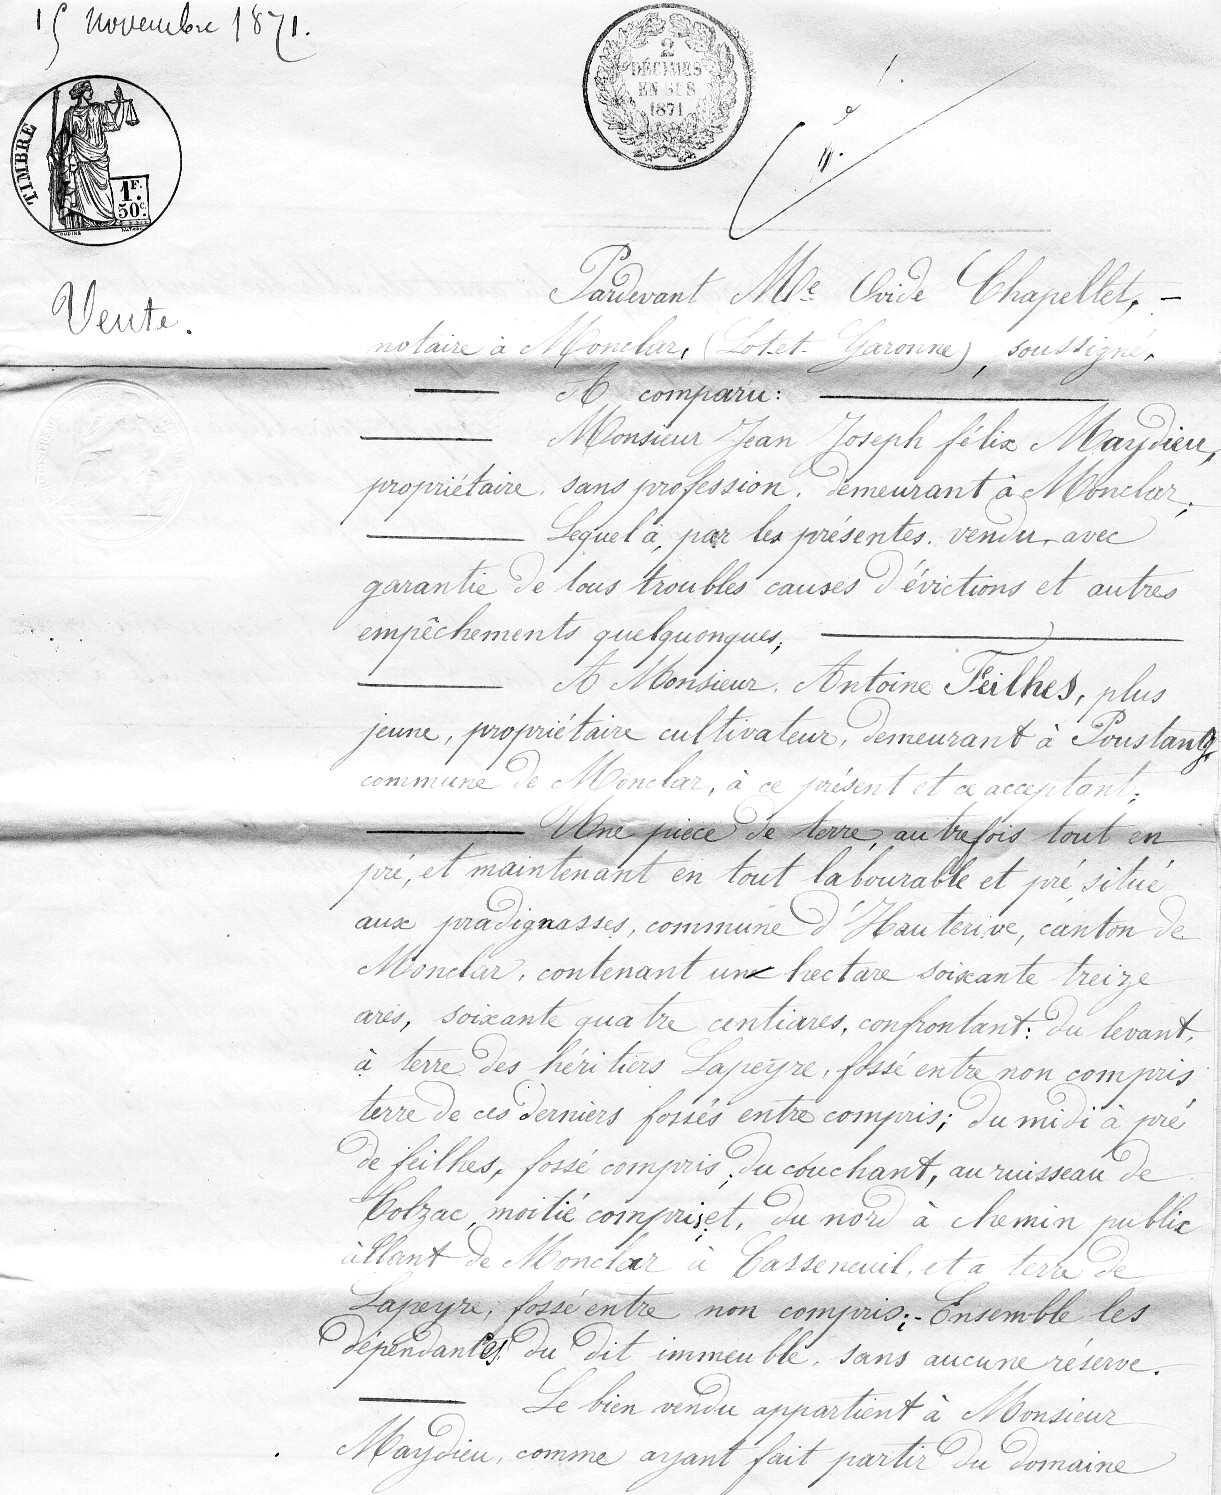 15 novembre 1871.
2
DÉCIMES
EN SUS
1871
TIMBRE
1F.
50c.
Vente.
Pardevant Me Ovide Chapellet, -
notaire à Monclar, (Lot-et-Garonne), soussigné.
A comparu:
Monsieur Jean Joseph félix Maydieu,
propriétaire, sans profession, demeurant à Monclar;
Lequel a, par les présentes, vendu, avec
garantie de tous troubles causes d'évictions et autres
empêchements quelquonques;
A Monsieur, Antoine Feilhes, plus
jeune, propriétaire cultivateur, demeurant à Poustang
commune de Monclar, à ce présent et ce acceptant;
Une pièce de terre, autrefois tout en
pré, et maintenant en tout labourable et pré situé
aux pradignasses, commune d'Hauterive, canton de
Monclar, contenant un hectare soixante treize
ares, soixante quatre centiares, confrontant: du levant,
à terre des héritiers Lapeyre, fossé entre non compris
terre de ces derniers fossés entre compris; du midi à pré
de feilhes, fossé compris; du couchant, au ruisseau de
Colzac, moitié compris; et, du nord à chemin public
allant de Monclar à Casseneuil, et a terre de
Lapeyre, fossé entre non compris;- Ensemble les
dépendances du dit immeuble, sans aucune réserve.
Le bien vendu appartient à Monsieur
Maydieu, comme ayant fait partir du domaine